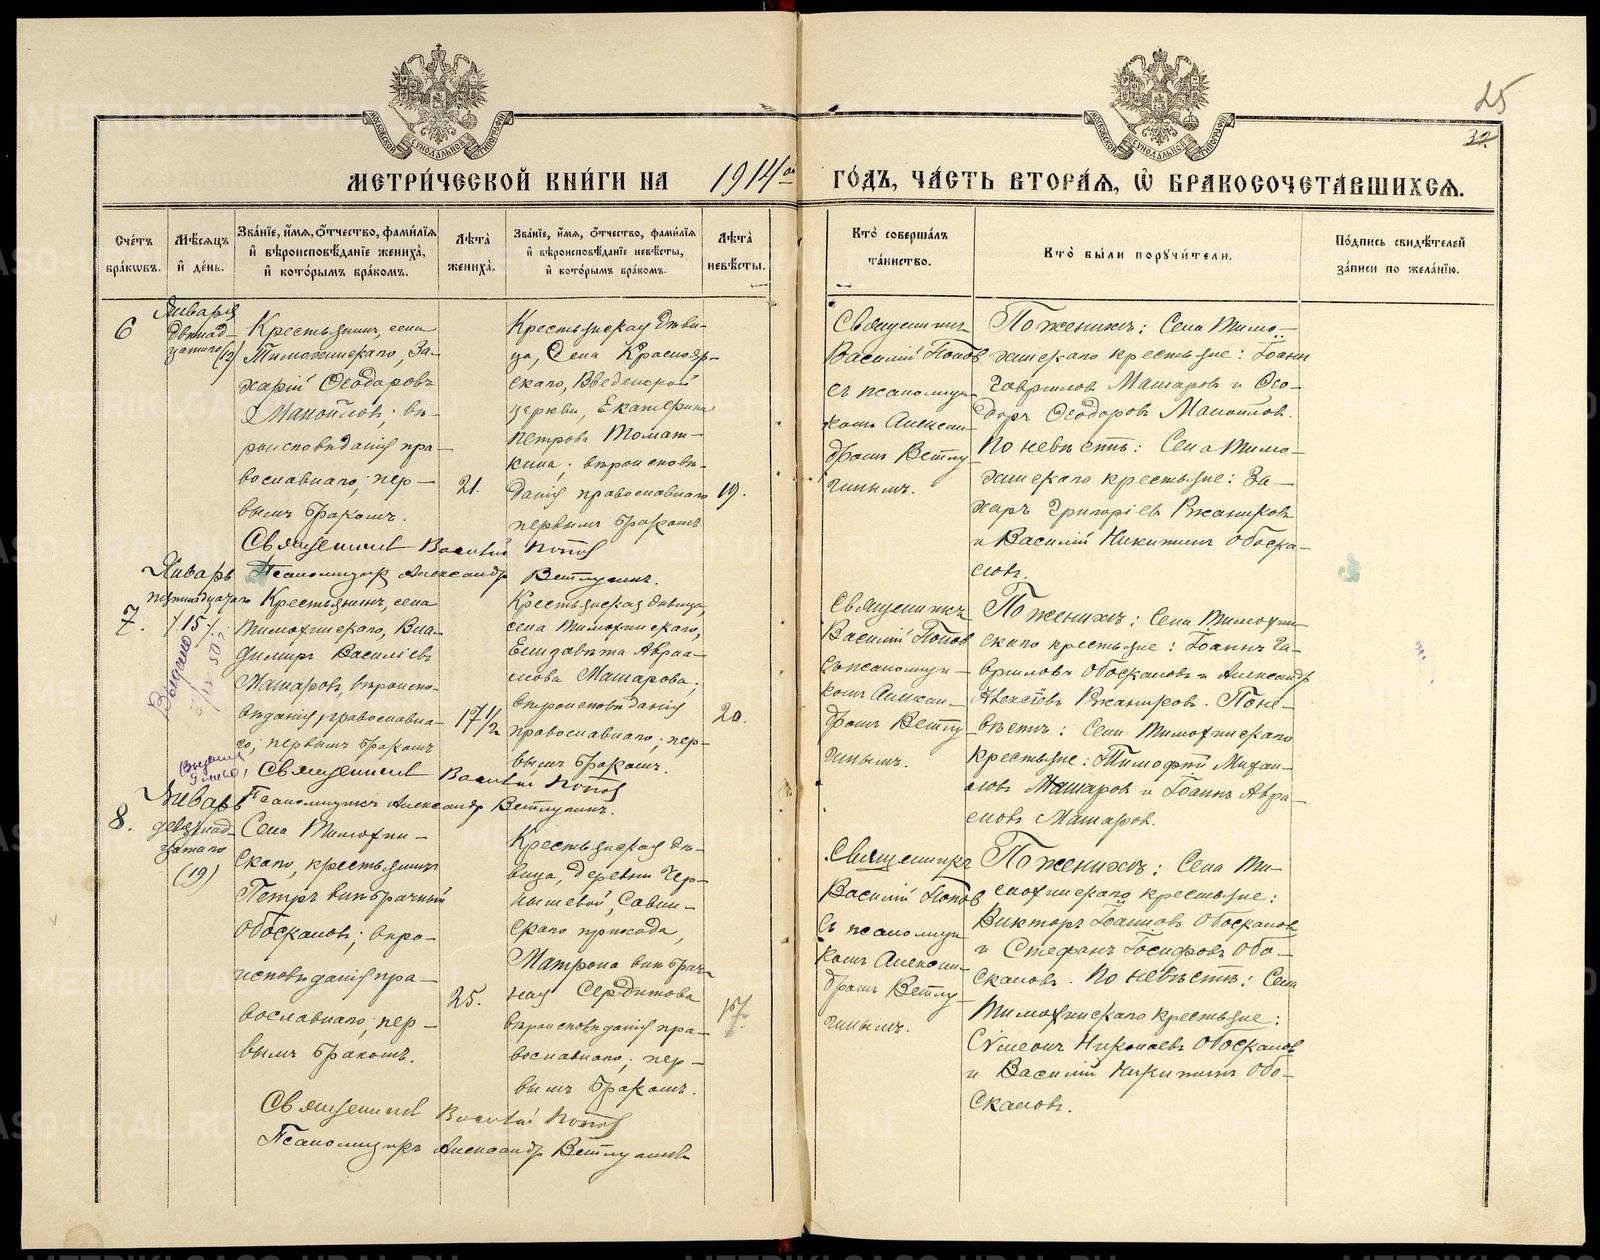 25
32
МЕТРИ́ЧЕСКОЙ КНИ́ГИ НА 1914й ГО́ДЪ, ЧА́СТЬ ВТОРА́Я, Ѡ҆ БРАКОСОЧЕТА́ВШИХСЯ.
Сче́тъ бра́кѡвъ.
Мѣ́сяцъ и҆ де́нь.
Зва́нїе, и҆́мя, ѻ҆́тчество, фами́лїя и҆ вѣроисповѣ́данїе жениха̀, и҆ кото́рымъ бра́комъ.
Лѣ́та жениха̀.
Зва́нїе, и҆́мя, ѻ҆́тчество, фами́лїя и҆ вѣроисповѣ́данїе невѣ́сты, и҆ кото́рымъ бра́комъ.
Лѣ́та невѣ́сты.
Кто̀ соверша́лъ та́инство.
Кто̀ бы́ли поручи́тели.
По́дпись свидѣ́телей за́писи по жела́нїю.
6
Января
двѣнад-
цатаго (12)
Крестьянинъ, села
Тимохинскаго, За-
харій Ѳеодоровъ
Манойловъ; вѣ-
роисповѣданія пра-
вославнаго; пер-
вымъ бракомъ.
21.
Крестьянская дѣви-
ца, Села Краснояр-
скаго, Введенской
церкви, Екатерина
Петрова
вѣроисповѣ-
данія православнаго
первымъ бракомъ
19.
Священникъ
Василій Поповъ
съ псаломщи-
комъ Алексан-
дромъ Ветлу-
гинымъ.
По женихѣ: Села Тимо-
хинскаго крестьяне: Іоаннъ
Гавриловъ Машаровъ и Ѳео-
доръ Ѳеодоровъ Манойловъ.
По невѣстѣ: Села Тимо-
хинскаго крестьяне: За-
харъ Григоріевъ Ржанниковъ
и Василій Никитинъ Обоска-
ловъ.
Священникъ Василій Поповъ
Псаломщикъ Александръ Ветлугинъ.
7.
Январь
пятнадцатаго
(15).
Выдано
Крестьянинъ, села
Тимохинскаго, Вла-
димиръ Василіевъ
Машаровъ, вѣроиспо-
вѣданія православна-
го; первымъ бракомъ
17 1/2
Крестьянская дѣвица,
села Тимохинскаго,
Елизавета Авраа-
мова Машарова;
вѣроисповѣданія
православнаго; пер-
вымъ бракомъ.
20.
Священникъ
Василій Поповъ
съ псаломщи-
комъ Алексан-
дромъ Ветлу-
гинымъ.
По женихѣ: Села Тимохин-
скаго крестьяне: Іоаннъ Га-
вриловъ Обоскаловъ и Александръ
Алексѣевъ Ржанниковъ. По не-
вѣстѣ: Села Тимохинскаго
крестьяне: Тимофей Михаи-
ловъ Машаровъ и Іоаннъ Авра-
амовъ Машаровъ.
Священникъ Василій Поповъ
Псаломщикъ Александръ Ветлугинъ.
8.
Январь
девятнад-
цатаго
(19)
Села Тимохин-
скаго, крестьянинъ
Петръ внѣбрачный
Обоскаловъ; вѣро-
исповѣданія пра-
вославнаго; пер-
вымъ бракомъ.
25.
Крестьянская дѣ-
вица, деревни Чер-
нышевой, Савин-
скаго прихода,
Матрона внѣбрач-
ная Сердитова
вѣроисповѣданія пра-
вославнаго; пер-
вымъ бракомъ.
Священникъ
Василій Поповъ
съ псаломщи-
комъ Алексан-
дромъ Ветлу-
гинымъ.
По женихѣ: Села Ти-
мохинскаго крестьяне:
Викторъ Іоанновъ Обоскаловъ
и Стефанъ Іосифовъ Обо-
скаловъ. По невѣстѣ: Села
Тимохинскаго крестьяне:
Сѵмеонъ Николаевъ Обоскаловъ
и Василій Никитинъ Обо-
скаловъ.
Священникъ Василій Поповъ
Псаломщикъ Александръ Ветлугинъ
METRIKI.GASO-URAL.RU